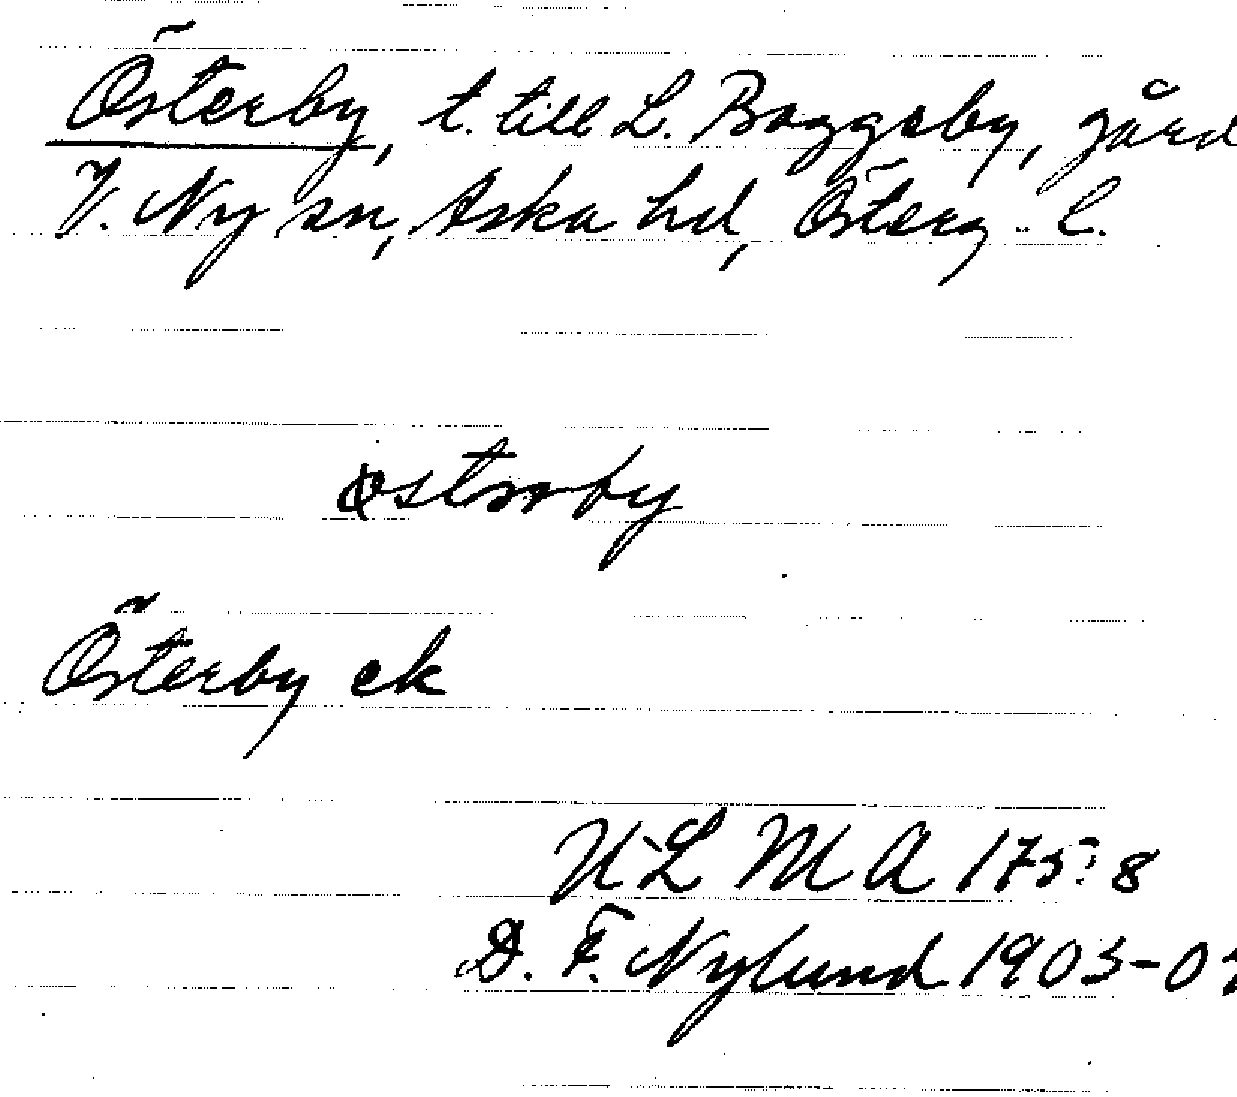 Österby, t. till L. Boggeby, gård
V. Ny sn, Aska hd, Österg. l.
Österby ck
ULMA 175:8
D. F. Nylund 1903-07